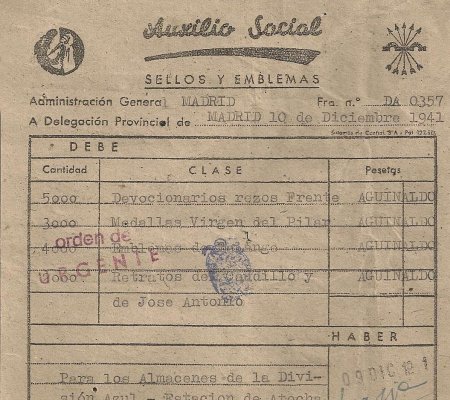 Auxilio Social
SELLOS Y EMBLEMAS
Administración General MADRID Fra. n.º DA 0357
A Delegación Provincial de MADRID 10 de Diciembre 1941
DEBE
Cantidad CLASE Pesetas
5000 Devocionarios rezos Frente AGUINALDO
3000 Medallas Virgen del Pilar AGUINALDO
orden de
URGENTE
4000 Emblemas de AGUINALDO
Retratos del Caudillo y AGUINALDO
de Jose Antonio
HABER
09 DIC
Para los Almacenes de la Divi-
sión Azul - Estacion de Atocha